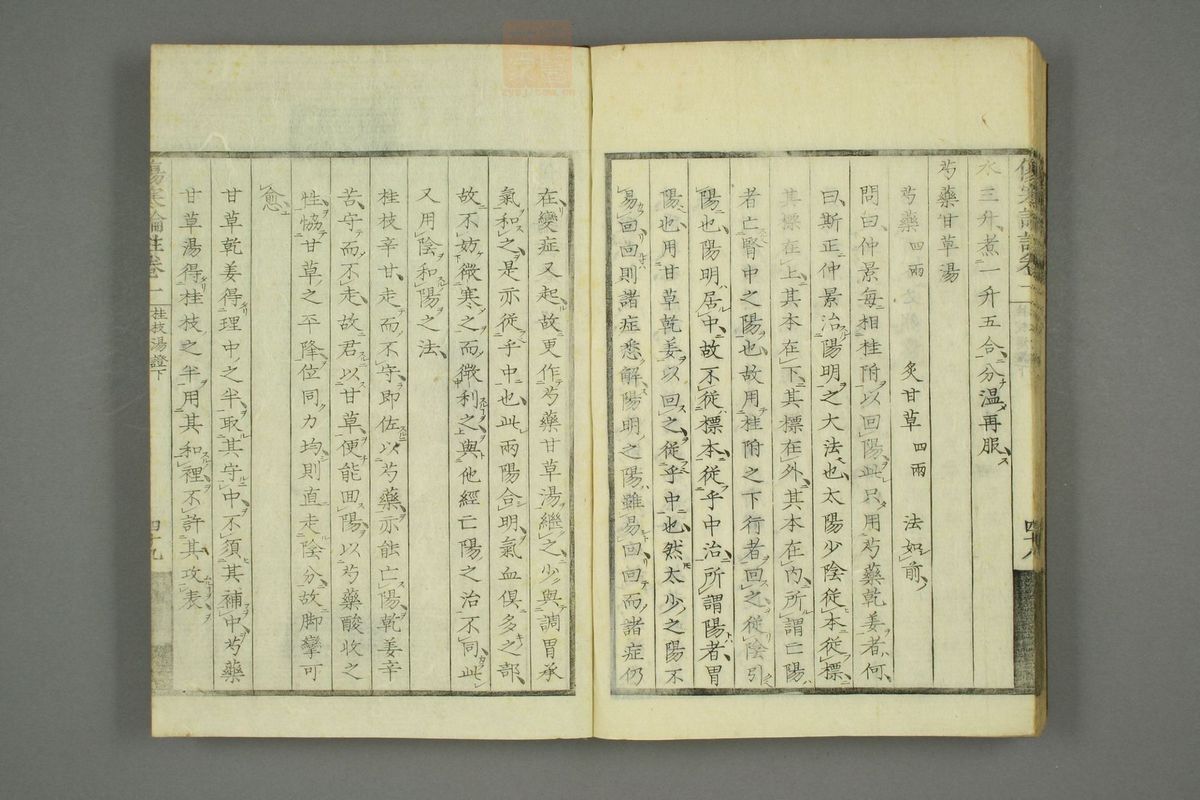 水三升、煮一升五合、分温再服
芍藥甘草湯
芍藥四兩 炙甘草四兩 法如前
問曰、仲景每相桂附以回陽、此只用芍藥乾姜者、何
曰、斯正仲景治陽明之大法也、太陽少陰從本從標
其標在上、其本在下、其標在外、其本在內、所謂亡陽
者、亡腎中之陽也、故用桂附之下行者、回之、從陰引
陽也、陽明居中、故不從標本從乎中治、所謂陽者、胃
陽也、用甘草乾姜以回之、從乎中也、然太少之陽不
易回、回則諸症悉解、陽明之陽雖易回、回而諸症仍
傷寒論註卷一
四十八
在、變症又起、故更作芍藥甘草湯繼之、少與調胃承
氣和之、是亦從乎中也、此兩陽合明、氣血俱多之部、
故不妨微寒之、而微利之、與他經亡陽之治不同、此
又用陰和陽之法、
桂枝辛甘、走而不守、即佐以芍藥、亦能亡陽、乾姜辛
苦、守而不走、故君以甘草、便能回陽、以芍藥酸收之
性、協甘草之平降、位同力均、則直走陰分、故脚攣可
愈
甘草乾姜得理中之半、取其守中、不須其補中、芍藥
甘草湯得桂枝之半、用其和裡、不許其攻表、
傷寒論註卷一 桂枝湯證下
四十九